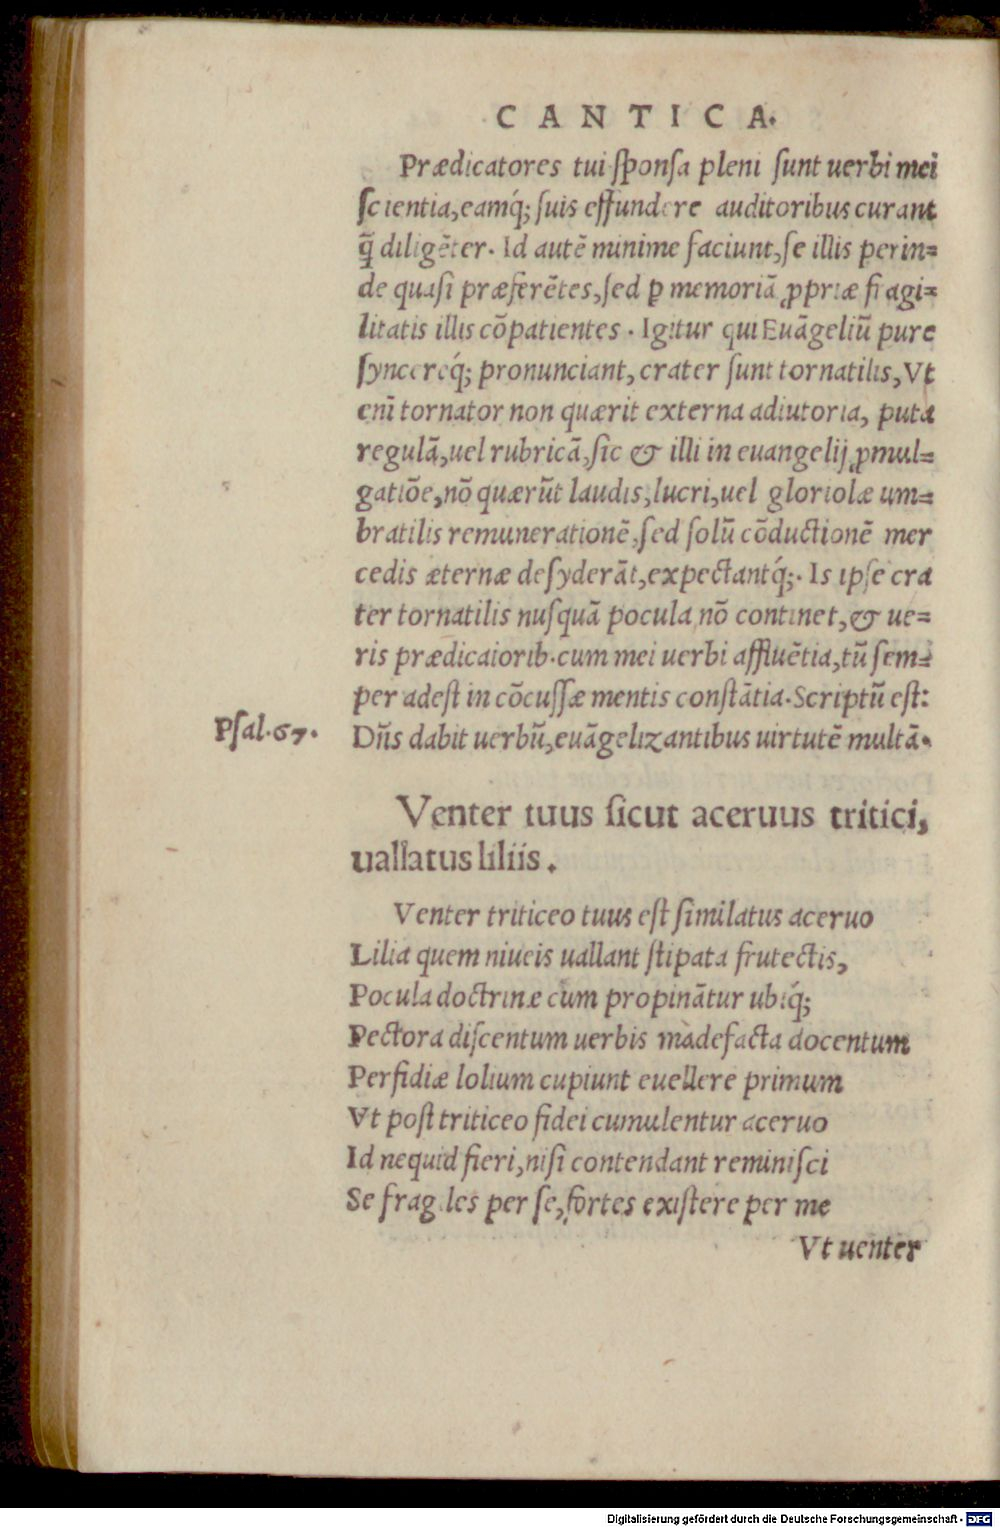 CANTICA.
Prædicatores tui sponsa pleni sunt uerbi mei
scientia, eamq́; suis effundere auditoribus curant
q̃ diligẽter. Id autẽ minime faciunt, se illis perin=
de quasi præferẽtes, sed ꝑ memoriã ꝓpriæ fragi=
litatis illis cõpatientes. Igitur qui Euãgeliũ pure
syncereq́; pronunciant, crater sunt tornatilis, Vt
enĩ tornator non quærit externa adiutoria, puta
regulã, uel rubricã, sic & illi in euangelij ꝓmul=
gatiõe, nõ quærũt laudis, lucri, uel gloriolæ um=
bratilis remunerationẽ, sed solũ cõductionẽ mer
cedis æternæ desyderãt, expectantq́;. Is ipse cra
ter tornatilis nusquã pocula nõ continet, & ue=
ris prædicaiorib. cum mei uerbi affluẽtia, tũ sem=
per adest in cõcussæ mentis constãtia. Scriptũ est:
Psal. 67. Dñs dabit uerbũ, euãgelizantibus uirtutẽ multã.
Venter tuus sicut aceruus tritici,
uallatus liliis.
Venter triticeo tuus est similatus aceruo
Lilia quem niueis uallant stipata frutectis,
Pocula doctrinæ cum propinãtur ubiq́;
Pectora discentum uerbis madefacta docentum
Perfidiæ lolium cupiunt euellere primum
Vt post triticeo fidei cumulentur aceruo
Id nequid fieri, nisi contendant reminisci
Se fragiles per se, fortes existere per me
Vt uenter
Digitalisierung gefördert durch die Deutsche Forschungsgemeinschaft - DFG